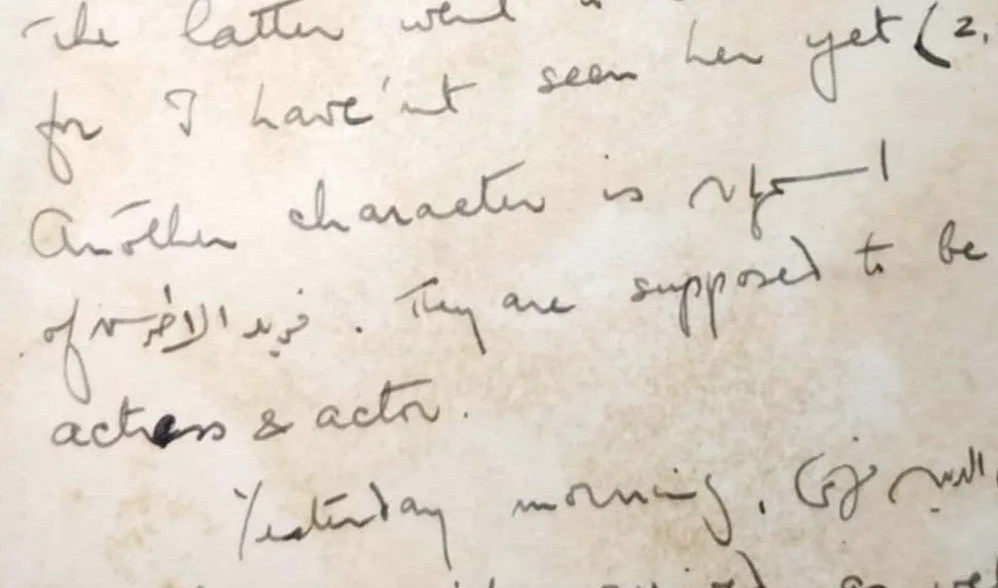 The latter went
for I haven't seen her yet (2.
Another character is اسمهان
of فريد الاطرش. They are supposed to be
actress & actor.
Yesterday morning,